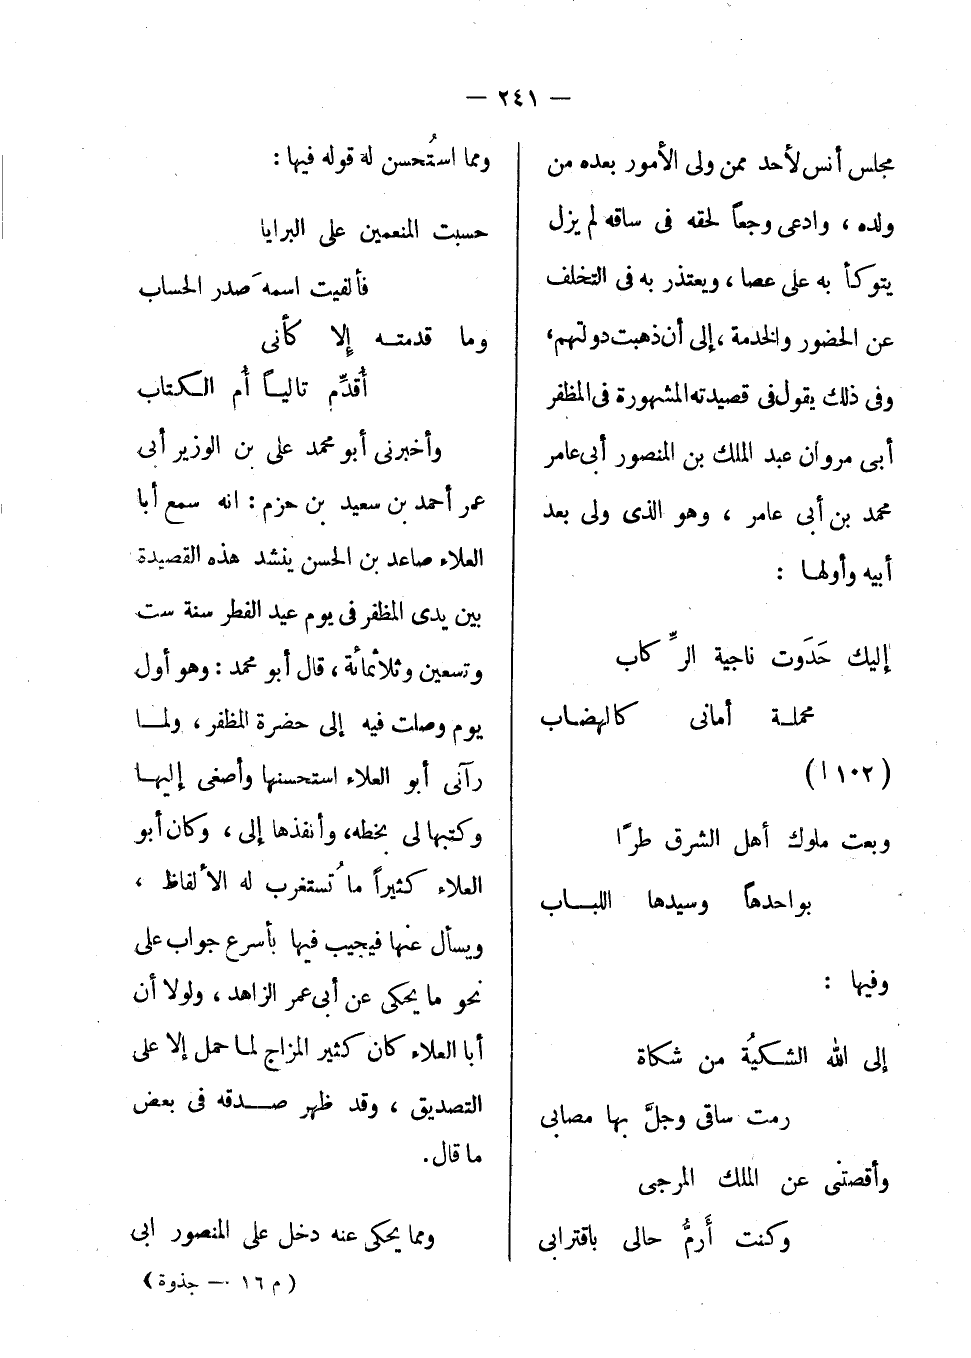 — ٢٤١ —
مجلس أنس لأحد ممن ولى الأمور بعده من
ولده ، وادعى وجعاً لحقه فى ساقه لم يزل
يتوكأ به على عصا ، ويعتذر به فى التخلف
عن الحضور والخدمة ، إلى أن ذهبت دولتهم ،
وفى ذلك يقول فى قصيدته المشهورة فى المظفر
أبى مروان عبد الملك بن المنصور أبى عامر
محمد بن أبى عامر ، وهو الذى ولى بعد
أبيه وأولهـا :
إليك حَدَوت ناجية الرِّكاب
محملـة أمانى كالهضـاب
( ١٠٢ ا )
وبعت ملوك أهل الشرق طرًا
بواحدها وسيدها اللبـــاب
وفيها :
إلى الله الشـكيُة من شـكاة
رمت ساقى وجلَّ بها مصابى
وأقصتنى عن الملك المرجى
وكنت أَرمُّ حالى باقترابى
ومما استُحسن له قوله فيها :
حسبت المنعمين على البرايا
فألفيت اسمه صَدر الحساب
وما قدمتــه إلا كأنى
أُقدِّم تاليـاً أُم الـكتاب
وأخبرنى أبو محمد على بن الوزير أبى
عمر أحمد بن سعيد بن حزم : انه سمع أبا
العلاء صاعد بن الحسن ينشد هذه القصيدة
بين يدى المظفر فى يوم عيد الفطر سنة ست
وتسعين وثلاثمائة ، قال أبو محمد : وهو أول
يوم وصلت فيه إلى حضرة المظفر ، ولمـا
رآنى أبو العلاء استحسنها وأصغى إليهـا
وكتبها لى بخطه، وأنفذها إلى ، وكان أبو
العلاء كثيراً ما تُستغرب له الألفاظ ،
ويسأل عنها فيجيب فيها بأسرع جواب على
نحو ما يحكى عن أبى عمر الزاهد ، ولولا أن
أبا العلاء كان كثير المزاج لمـا حمل إلا على
التصديق ، وقد ظهر صـــدقه فى بعض
ما قال.
ومما يحكى عنه دخل على المنصور ابى
( م ١٦ — جذوة )